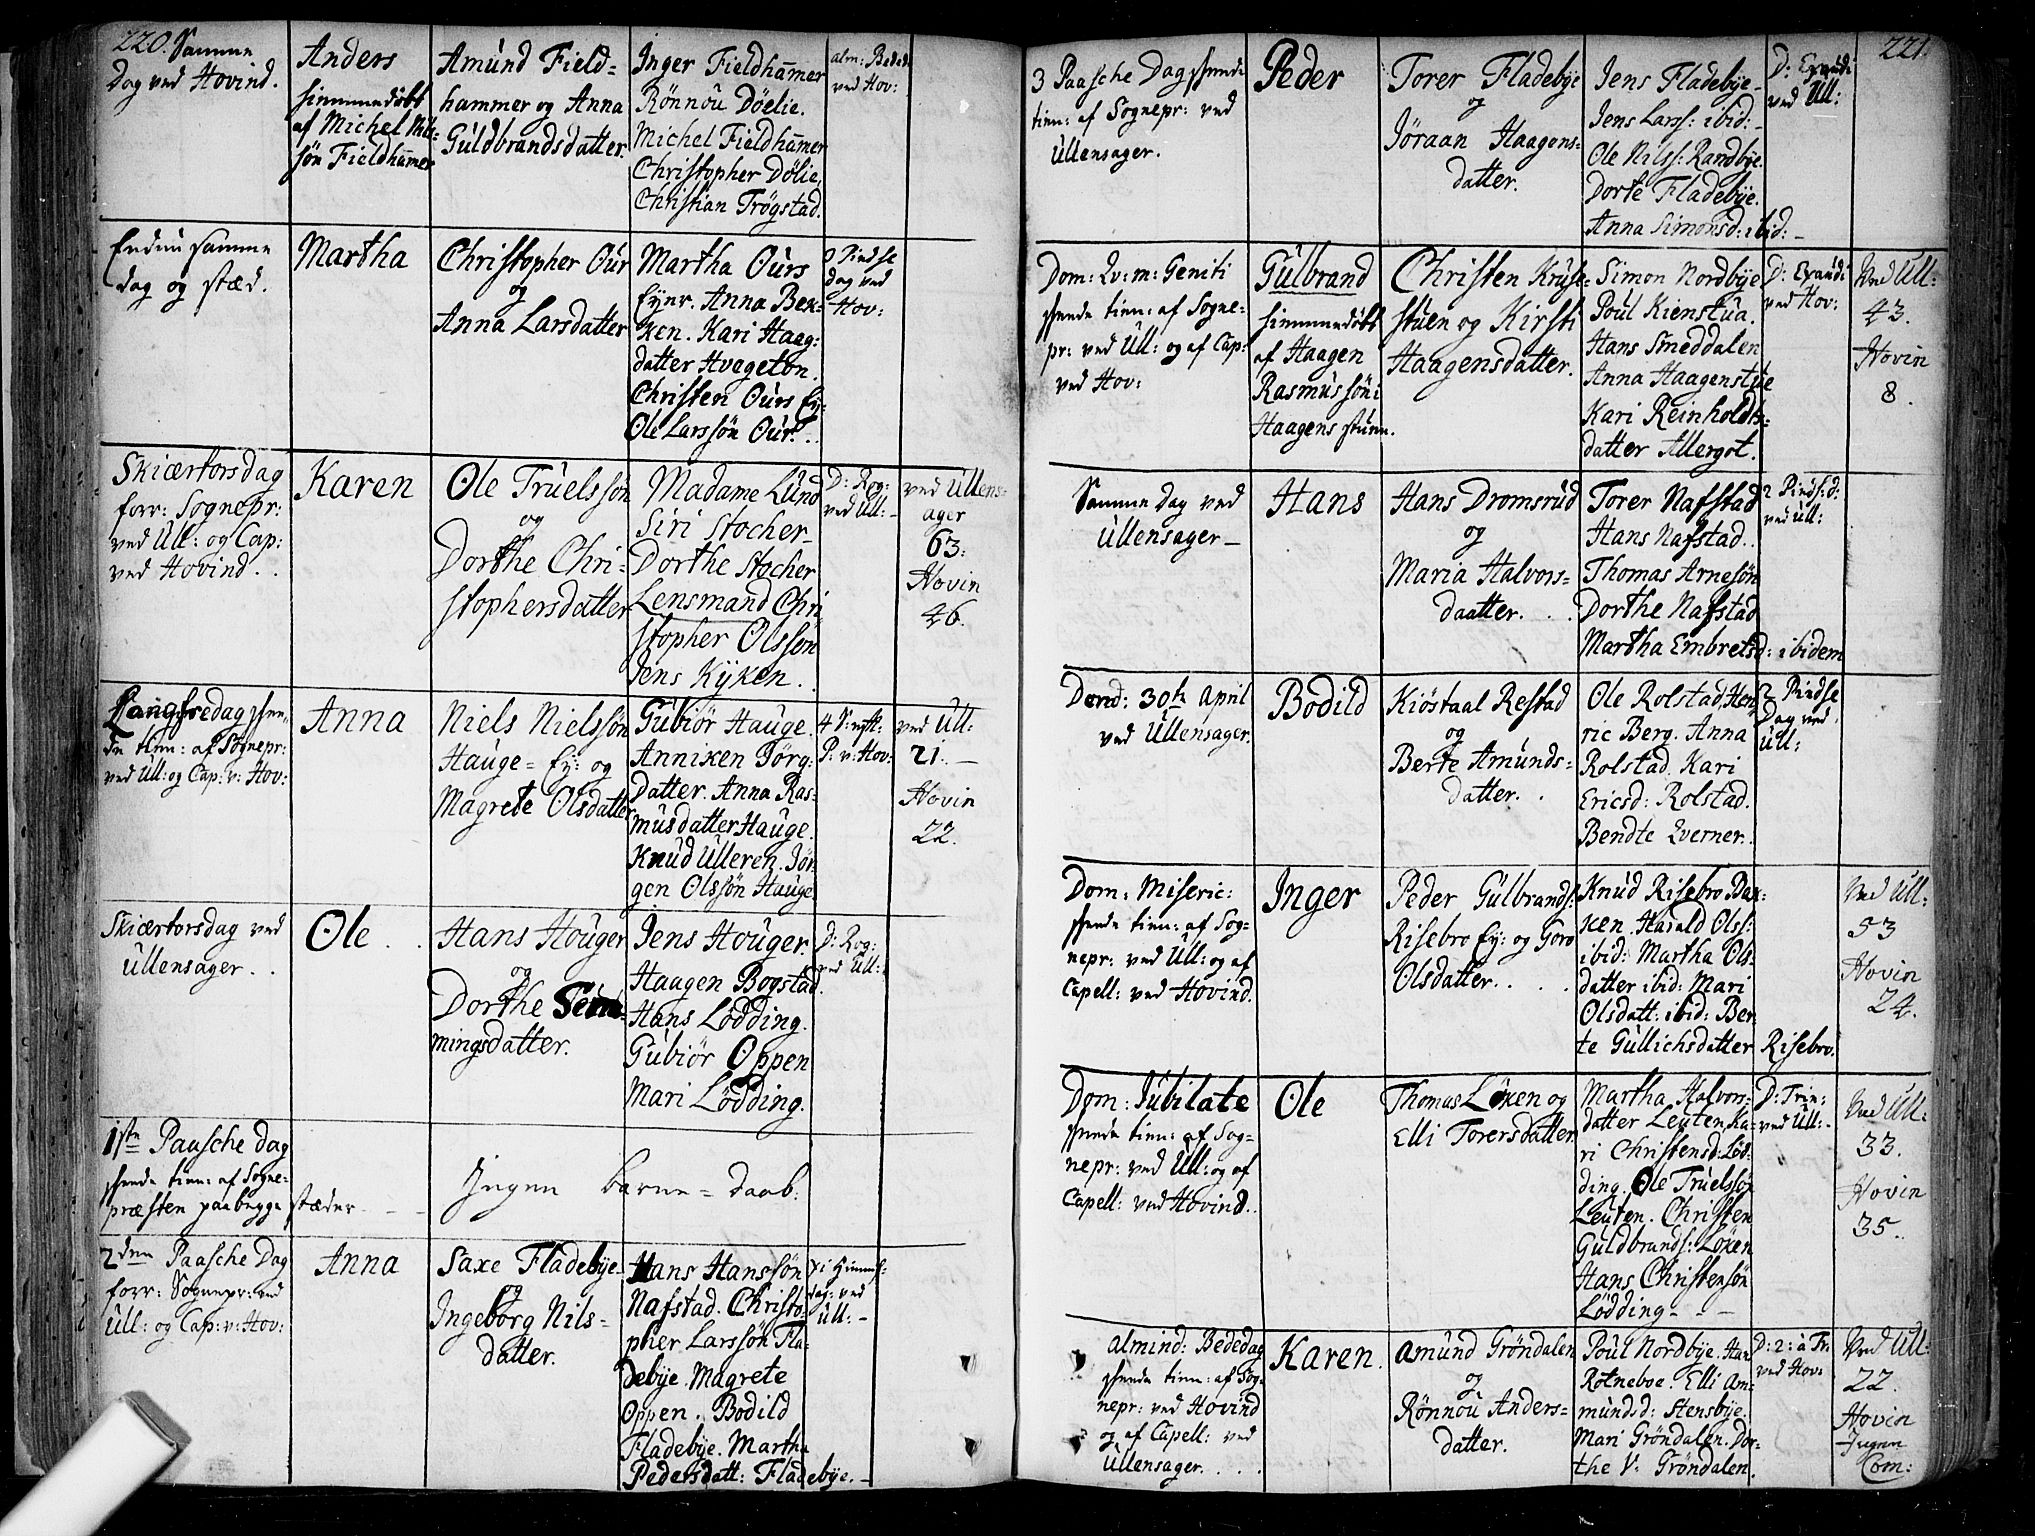 220. Samme
dag ved Hovind.
Anders
hiemmedöbt
af Michel Nil-
sön Fieldhamer
Amund Field-
hammer og Anna
Guldbrandsdatter.
Inger Fieldhamer
Rönnou Döelie.
Michel Fieldhamer
Christopher Dölie.
Christian Trögstad.
alm: Beded:
ved Hov:
Endnu samme
dag og stæd.
Martha
Christopher Our
og
Anna Larsdatter
Martha Ours
Eynr. Anna Bek-
ken. Kari Haag:
datter Hvageton.
Christen Ours Ey:
Ole Larssön Our.
2 Pindse
dag ved
Hov:
Skiærtorsdag
forr: Sognepr:
ved Ull: og Cap:
ved Hovind.
Karen
Ole Truelssön
og
Dorthe Chri-
stophersdatter
Madame Lund
Siri Stocher-
Dorthe Stocher
Lensmand Chri
stopher Olsson
Jens Kÿken.
D: Rog:
ved Ull: -
ved Ullens-
ager
63:
Hovin
46.
Langfredag forr
de tien: af Sognepr:
ved Ull: og Cap: v: Hov:
Anna
Niels Nielssön
Hauge- Ey: og
Magrete Olsdatter
Gubiör Hauge.
Anniken Jörg:
Datter. Anna Ras-
musdatter Hauge.
Knud Ulleren. Jör-
gen Olssön Hauge.
4 S: eft:
P: v: Hov:
ved Ull:
21. -
Hovin
22.
Skiærtorsdag ved
Ullensager.
Ole
Hans Houger
og
Dorthe Sem-
mingsdatter.
Jens Houger.
Haagen Bogstad
Hans Lödding.
Gubiör Oppen
Mari Lödding.
D: Rog:
ved Ull:
1ste Paasche dag
skeede tien: af Sogne-
præsten paa begge stæder
Ingen barne-daab.
2den Paasche Dag
forr: Sognepr: ved
Ull: og Cap: v: Hov:
Anna
Saxe Fladebÿe-
og
Ingeborg Nils-
datter.
Hans Hanssön
Nafstad. Christo-
pher Larssön Fla-
debÿe. Magrete
Oppen. Bodild
Fladebÿe. Martha
Pedersdatt: Fladebÿe. -
Xi Himmf:
dag: ved
Ull: -
221.
3 Paasche Dag skeede
tien: af Sognepr: ved
Ullensager.
Peder
Torer Fladebÿe
og
Jöraan Haagens-
datter.
Jens Fladebÿe-
Jens Larss: ibid: -
Ole Nilss: Randbÿe.
Dorte Fladebÿe.
Anna Simonsd: ibid: -
D: Exaudi
ved Ull:
Dom: Qv: m: Geniti
skeede tien: af Sogne-
pr: ved Ull: og af Cap:
ved Hov:
Gulbrand
hiemmedöbt
af Haagen
Rasmussön i
Haagens stuen.
Christen Kruse-
stuen og Kirsti
Haagensdatter.
Simon Nordbÿe
Poul Kienstua.
Hans Smeddalen
Anna Haagenstue
Kari Reinholdts-
datter Allergot.
D: Exaudi
ved Hov:
Ved Ull:
43.
Hovin
8.
Samme Dag ved
Ullensager -
Hans
Hans Dromsrud
og
Maria Halvors-
daatter.
Torer Nafstad
Hans Nafstad.
Thomas Arnesön
Dorthe Nafstad
Martha Embretsd: ibidem
2 Pinds: d:
ved Ull:
Dend: 30te April
ved Ullensager.
Bodild
Kiöstaal Restad
og
Berte Amunds-
datter.
Ole Rolstad, Hen-
ric Berg. Anna
Rolstad. Kari
Ericsd: Rolstad.
Bendte Qverner.
2 Pindse
Dag ved
Ull:
Dom: Miseric:
skeede tien: af Sog-
nepr: ved Ull: og af
Capell: ved Hovind.
Inger
Peder Gulbrands:
Risebro Ey: og Goro
Olsdatter.
Knud Risebro Bak-
ken. Harald Olss:
ibid: Martha Ols-
datter ibid: Mari
Olsdatt: ibid: Ber-
te Gullichsdatter Risebro.
Ved Ull:
53
Hovin
24.
Dom: Jubilate
skeede tien: af Sog-
nepr: ved Ull: og af
Capell: ved Hovind.
Ole
Thomas Löken og
Elli Torersdatter.
Martha Halvors-
datter Leuten, Ka-
ri Christensd: Löd-
ding. Ole Truelssön
Leuten. Christen
Guldbrands: Löken
Hans Christensön
Lödding -
D: Trin:
ved Ull: -
Ved Ull:
33.
Hovin
35.
almind: Bededag
skeede tien: af Sog-
nepr: ved Hovind
og af Capell: ved
Ullensager.
Karen.
Amund Gröndalen
og
Rönnou Anders-
datter.
Poul Nordbÿe. Han
Rotneboe. Elli Am-
mundsd: Stensbÿe.
Mari Gröndalen. Dor-
the V: Gröndalen.
D: 2: à Tr:
ved Hov:
Ved Ull:
22.
Hovin
Ingen
Com: